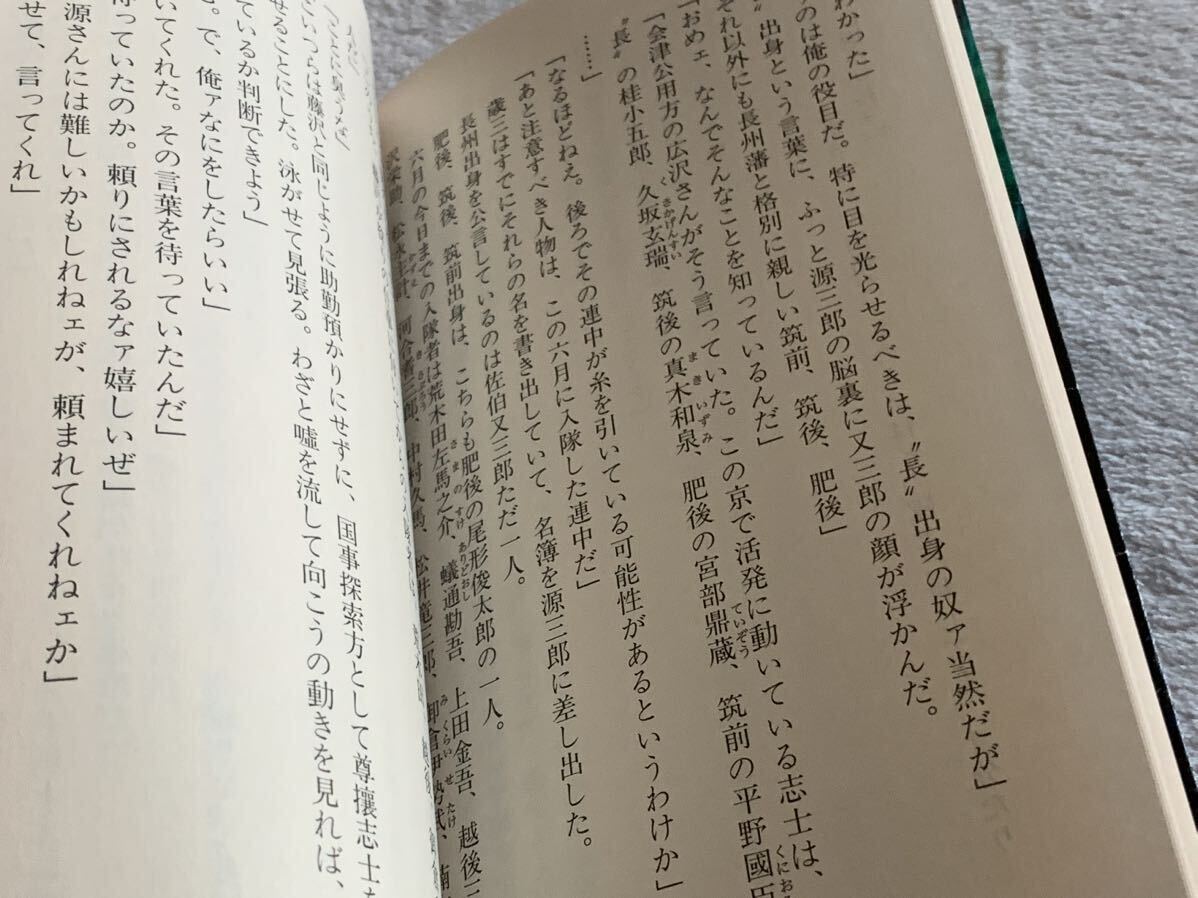 わかった」
のは俺の役目だ。特に目を光らせるべきは、〝長〟出身の奴ァ当然だが」
〟出身という言葉に、ふっと源三郎の脳裏に又三郎の顔が浮かんだ。
それ以外にも長州藩と格別に親しい筑前、筑後、肥後」
「おめェ、なんでそんなことを知っているんだ」
「会津公用方の広沢さんがそう言っていた。この京で活発に動いている志士は、
〝長〟の桂小五郎、久坂玄瑞、筑後の真木和泉、肥後の宮部鼎蔵、筑前の平野國臣
……」
「なるほどねえ。後ろでその連中が糸を引いている可能性があるというわけか」
「あと注意すべき人物は、この六月に入隊した連中だ」
歳三はすでにそれらの名を書き出していて、名簿を源三郎に差し出した。
長州出身を公言しているのは佐伯又三郎ただ一人。
肥後、筑後、筑前出身は、こちらも肥後の尾形俊太郎の一人。
六月の今日までの入隊者は荒木田左馬之介、蟻通勘吾、上田金吾、越後三
松永主計、河合耆三郎、中村久馬、松井竜三郎、御倉伊勢武、
こいつらは藤沢と同じように助勤預かりにせずに、国事探索方として尊攘志士を
せることにした。泳がせて見張る。わざと嘘を流して向こうの動きを見れば、
ているか判断できよう」
る。で、俺ァなにをしたらいい」
いてくれた。その言葉を待っていたんだ」
待っていたのか。頼りにされるなァ嬉しいぜ」
源さんには難しいかもしれねェが、頼まれてくれねェか」
せて、言ってくれ」